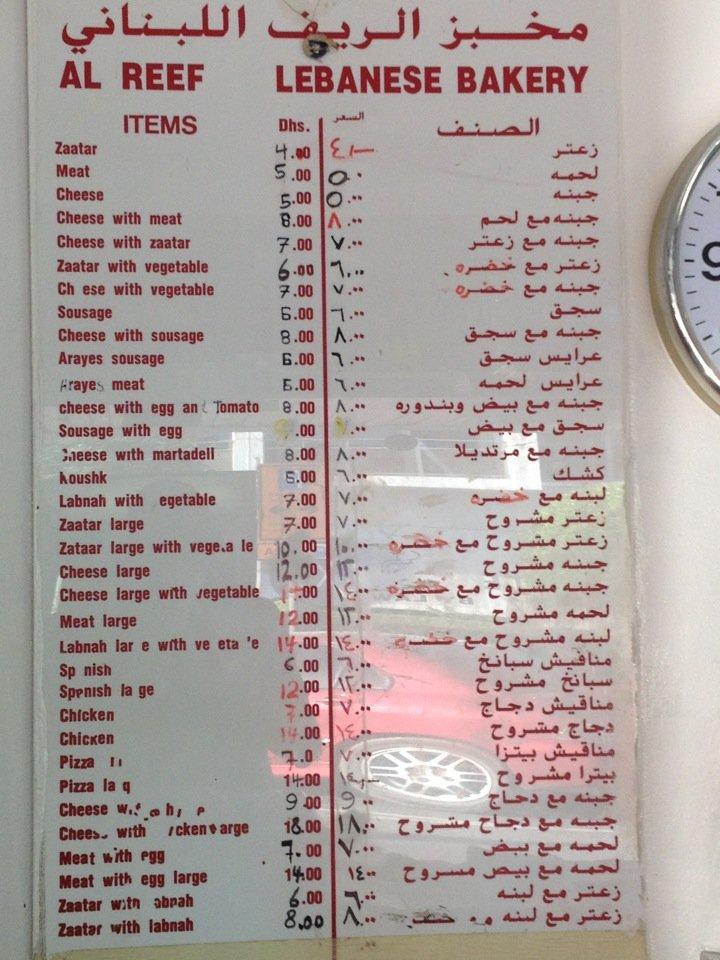 مخبز الريف اللبناني
AL REEF LEBANESE BAKERY
ITEMS Dhs. السعر الصنف
Zaatar 4.00 ٤/— زعتر
Meat 5.00 لحمه
Cheese 5.00 جبنه
Cheese with meat 8.00 ٨.٠٠ جبنه مع لحم
Cheese with zaatar 7.00 ٧.٠٠ جبنه مع زعتر
Zaatar with vegetable 6.00 ٦.٠٠ زعتر مع خضره
Ch ese with vegetable 7.00 ٧.٠٠ جبنه مع خضره
Sousage 6.00 ٦.٠٠ سجق
Cheese with sousage 8.00 ٨.٠٠ جبنه مع سجق
Arayes sousage 6.00 ٦.٠٠ عرايس سجق
Arayes meat 6.00 ٦.٠٠ عرايس لحمه
cheese with egg an Tomato 8.00 ٨.٠٠ جبنه مع بيض وبندوره
Sousage with egg سجق مع بيض
Cheese with martadell 8.00 ٨.٠٠ جبنه مع مرتديلا
Koushk 6.00 ٦.٠٠ كشك
Labnah with egetable 7.00 ٧.٠٠ لبنه مع خضره
Zaatar large 7.00 ٧.٠٠ زعتر مشروح
Zataar large with vege a le 10.00 ١٠.٠٠ زعتر مشروح مع خضره
Cheese large 12.00 ١٢.٠٠ جبنه مشروح
Cheese large with vegetable 14.00 ١٤.٠٠ جبنه مشروح مع خضره
Meat large 12.00 ١٢.٠٠ لحمه مشروح
Labnah lar e with ve eta e 14.00 ١٤.٠٠ لبنه مشروح مع خضره
Sp nish 6.00 ٦.٠٠ مناقيش سبانخ
Spenish la ge 12.00 ١٢.٠٠ سبانخ مشروح
Chicken 7.00 ٧.٠٠ مناقيش دجاج
Chicken 14.00 ١٤.٠٠ دجاج مشروح
Pizza 7.0 ٧.٠٠ مناقيش بيتزا
Pizza la 14.00 بيتزا مشروح
Cheese 9.00 9.٠٠ جبنه مع دجاج
Chees with icken arge 18.00 ١٨.٠٠ جبنه مع دجاج مشروح
Meat with egg 7.00 ٧.٠٠ لحمه مع بيض
Meat with egg large 14.00 ١٤.٠٠ لحمه مع بيض مشروح
Zaatar with abnah 6.00 ٦.٠٠ زعتر مع لبنه
Zaatar with labnah 8.00 ٨.٠٠ زعتر مع لبنه مع
9